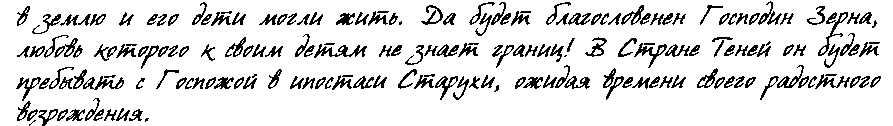 в землю и его дети могли жить. Да будет благословенен Господин Зерна,
любовь которого к своим детям не знает границ! В Стране Теней он будет
пребывать с Госпожой в ипостаси Старухи, ожидая времени своего радостного
возрождения.